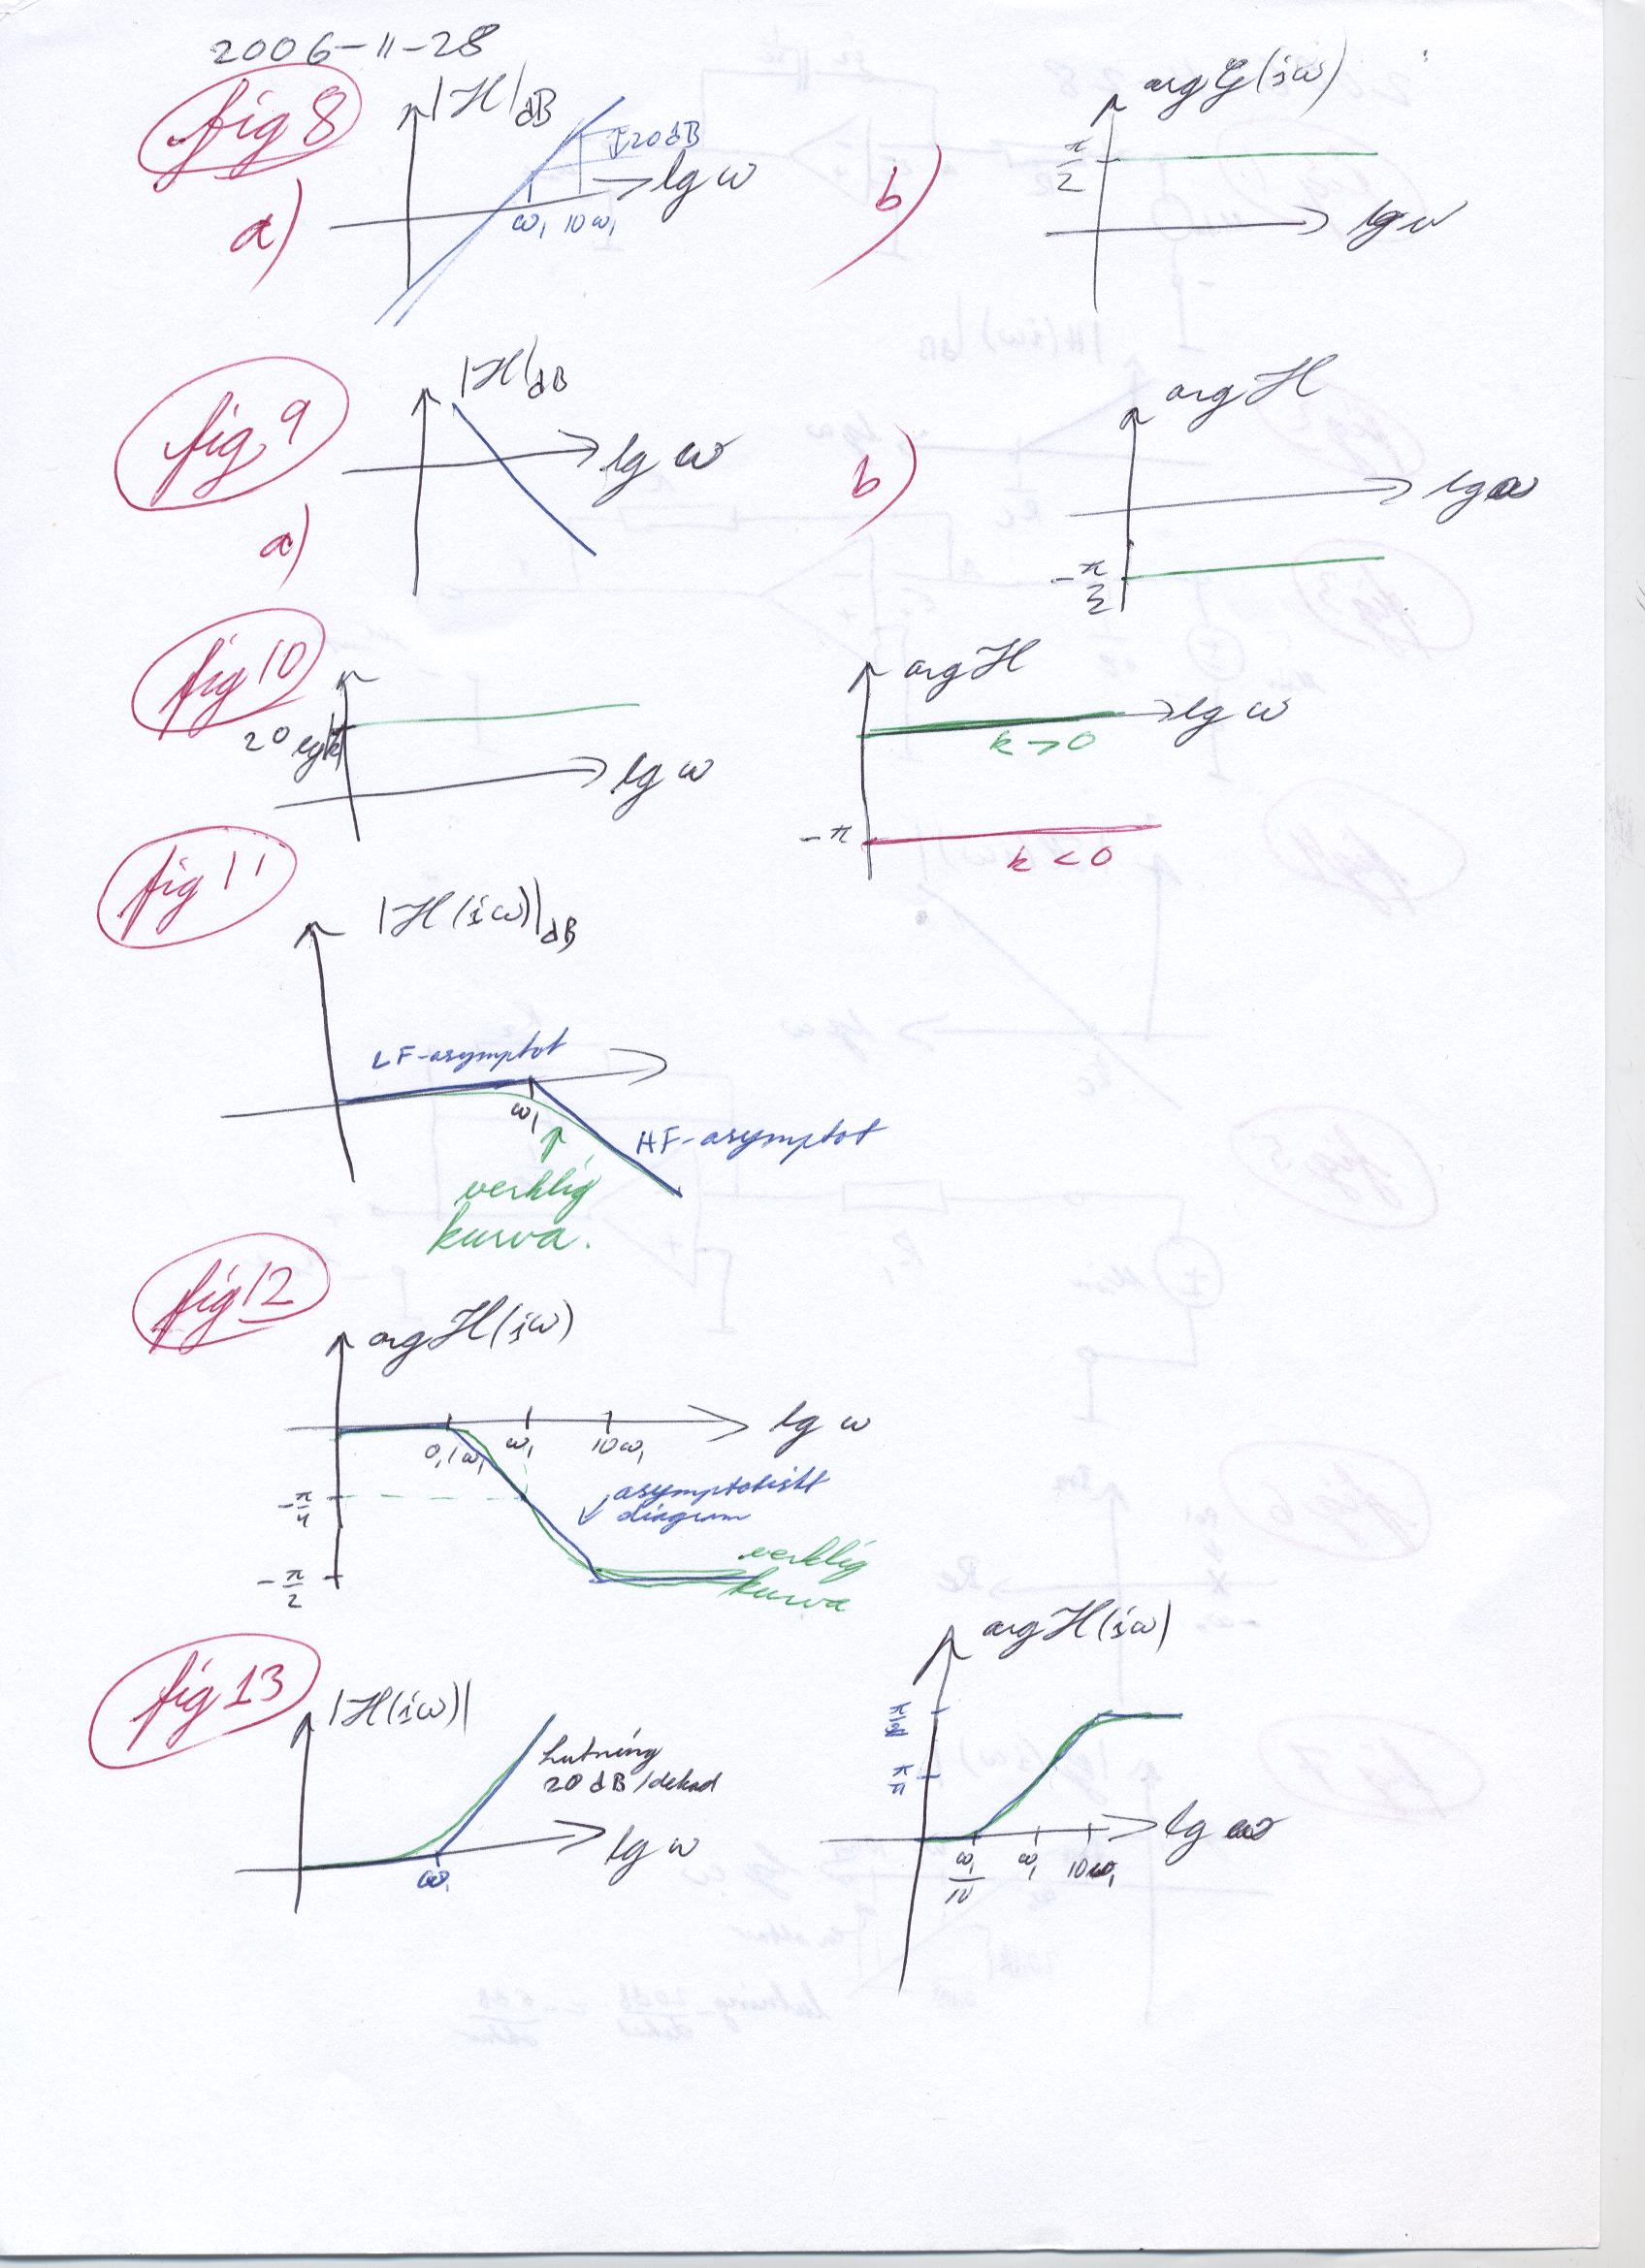 2006-11-28
fig 8
a)
|H|dB
20 dB
lg ω
ω₁ 10ω₁
b)
arg G(iω)
π/2
lg ω
fig 9
a)
|H|dB
lg ω
b)
arg H
lg ω
-π/2
fig 10
20 lg|k|
lg ω
arg H
lg ω
k > 0
-π
k < 0
fig 11
|H(iω)|dB
LF-asymptot
ω₁
HF-asymptot
verklig
kurva.
fig 12
arg H(iω)
lg ω
0,1ω₁ ω₁ 10ω₁
-π/4
asymptotiskt
diagram
-π/2
verklig
kurva
fig 13
|H(iω)|
Lutning
20 dB/dekad
lg ω
ω₁
arg H(iω)
π/2
π/4
lg ω
ω₁/10 ω₁ 10ω₁